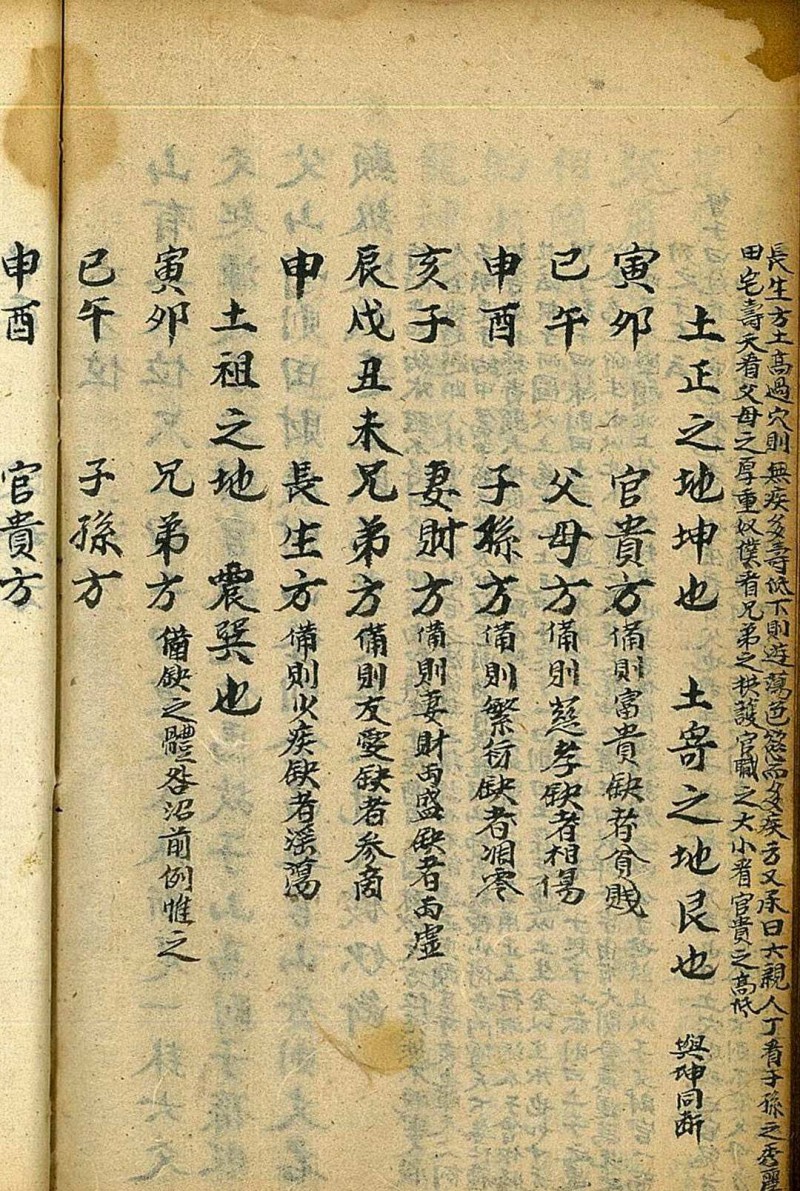 長生方土高過穴則無疾多壽低下則遊蕩色慾而多疾方又承曰六親人丁看子孫之秀麗
田宅壽夭看父母之厚重奴僕看兄弟之拱護官職之大小看官貴之高低
土正之地坤也 土寄之地艮也 與坤同断
寅卯 官貴方 備則富貴缺者貧賤
巳午 父母方 備則慈孝缺者相傷
申酉 子孫方 備則繁衍缺者凋零
亥子 妻財方 備則妻財両盛缺者両虛
辰戌丑未兄弟方 備則友愛缺者参商
申 長生方 備則少疾缺者溫蕩
土祖之地 震巽也
寅卯 兄弟方 備缺之體咎沿前例惟之
巳午 子孫方
申酉 官貴方